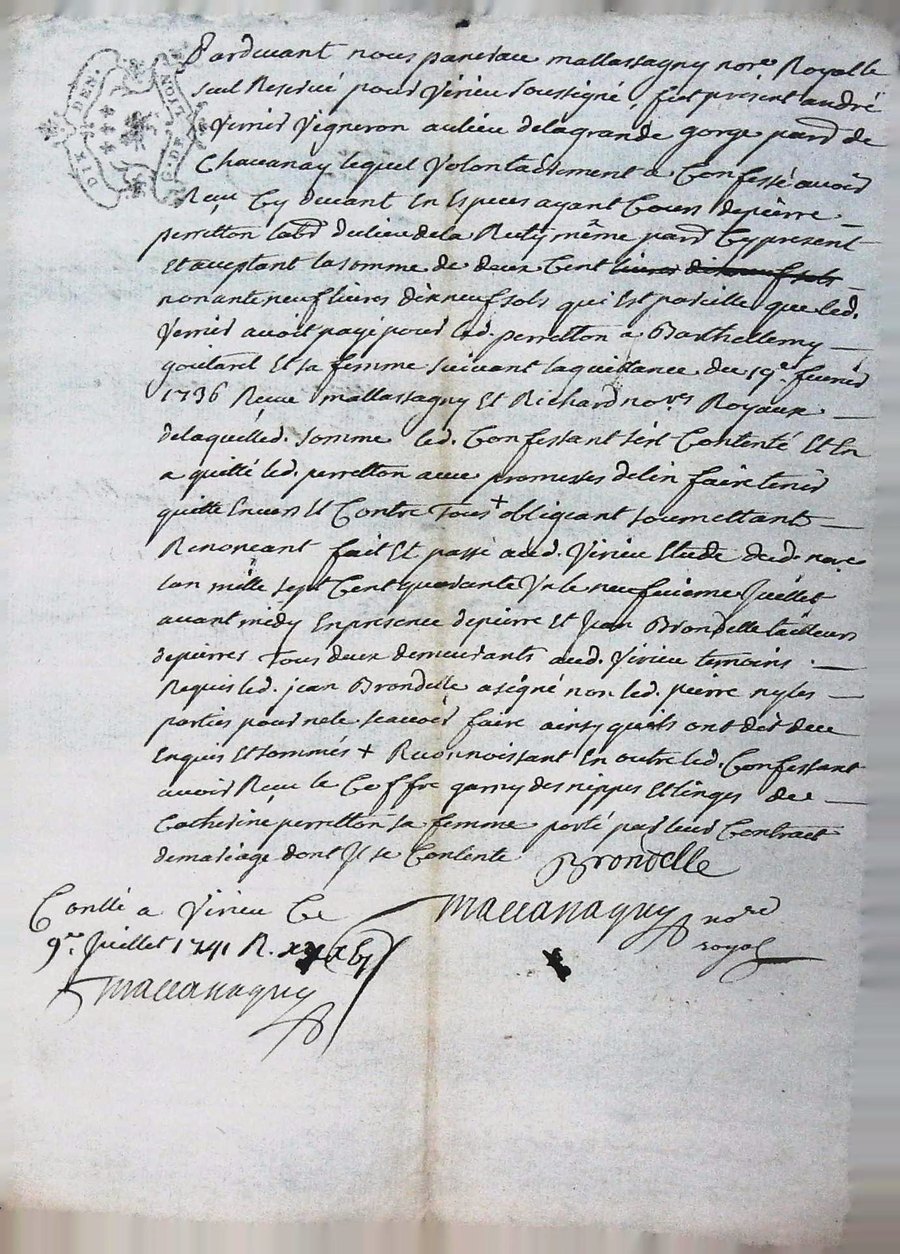 DIX DEN.
G. DE LION
Pardevant nous pancrace mallassagny nore. Royalle
seul Reservé pour Virieu soussigné, fut present andré
Verrier Vigneron au lieu de la grande gorge parr. de
Chavanay lequel Volontairement a Confessé avoir
Reçu Cy devant En Especes ayant Cours de pierre
perretton labr du lieu de la même parr. Cy present
Et acceptant la somme de deux Cent livres dix neuf sols
nonante neuf livres dix neuf sols qui Est pareille que led.
Verrier avoit payé pour led. perretton a Barthellemy
goutarel Et sa femme suivant la quittance du 19e. fevrier
1736 Recue mallassagny Et Richard nores Royaux
de laquelle d. somme led. Confessant s'est Contenté Et En
a quitté led. perretton avec promesses de l'en faire tenir
quitte Envers Et Contre Tous + obligeant soumettant
Renonçant fait Et passé aud. Virieu Etude dud. nore
l'an mille sept Cent quarante Un le neufvieme Juillet
avant midy En presence de pierre Et Jean Brondelle tailleurs
de pierres Tous deux demeurants aud. Virieu temoins
Requis led. jean Brondelle a signé non led. pierre ny les
parties pour ne le sçavoir faire ainsy quils ont dit de ce
Enquis Et sommés + Reconnoissant En outre led. Confessant
avoir Reçu le Coffre garny des nippes Et linges de
Catherine perretton sa femme porté par leur Contract
de mariage dont Il se Contente
Brondelle
Mallassagny nore
royal
Conllé a Virieu Ce
9re Juillet 1741 R.
Mallassagny